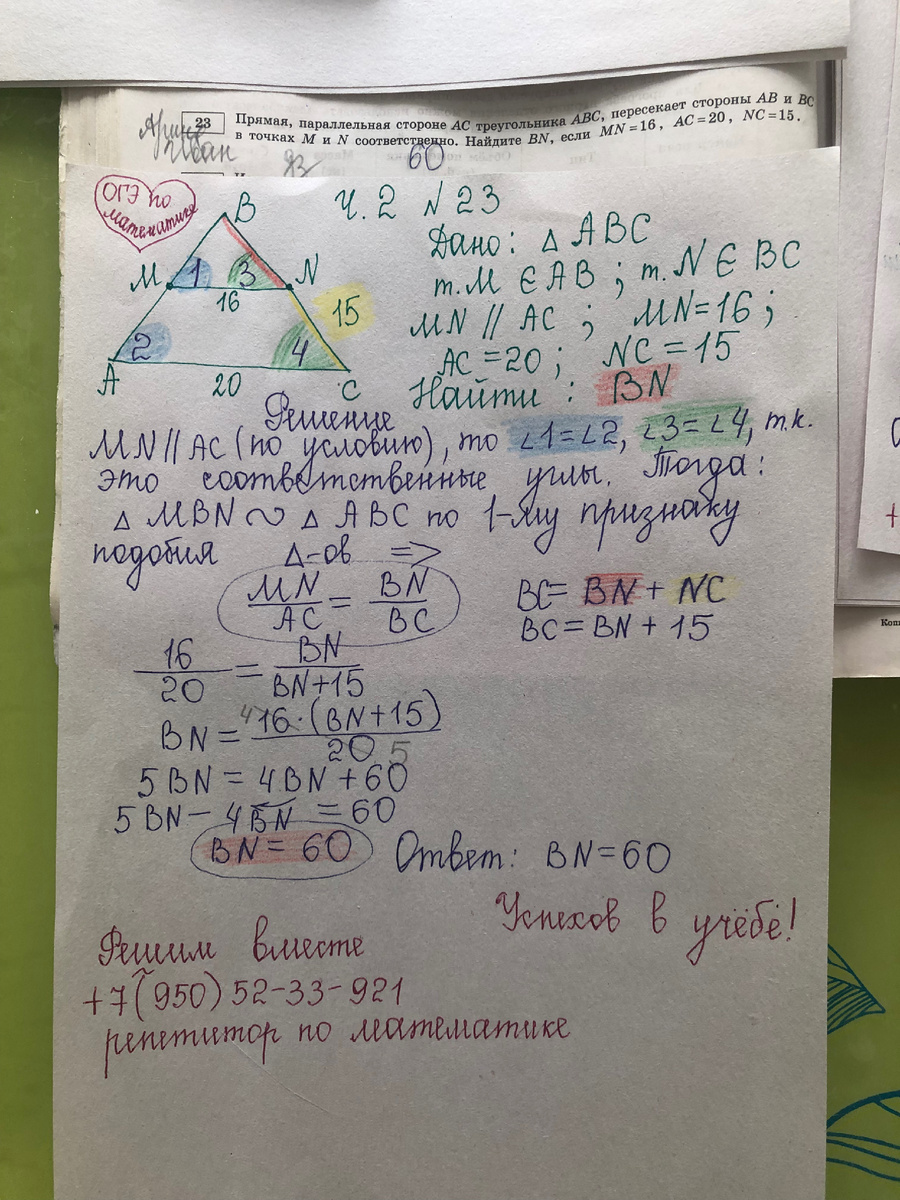 23 Прямая, параллельная стороне AC треугольника ABC, пересекает стороны AB и BC
в точках M и N соответственно. Найдите BN, если MN = 16, AC = 20, NC = 15.
Иван
60
ОГЭ по
математике
Ч. 2 N 23
B
Дано: △ ABC
M 1 3 N
т. M ∈ AB ; т. N ∈ BC
16
15
MN // AC ; MN=16 ;
2 4
AC = 20 ; NC = 15
A 20 C
Найти : BN
Решение
MN // AC (по условию), то ∠1=∠2, ∠3=∠4, т.к.
это соответственные углы. Тогда:
△ MBN ∾ △ ABC по 1-му признаку
подобия △-ов =>
MN/AC = BN/BC
BC= BN + NC
BC= BN + 15
16/20 = BN/BN+15
BN = 4 16·(BN+15)/20 5
5 BN = 4 BN + 60
5 BN − 4 BN = 60
BN = 60 Ответ: BN=60
Успехов в учёбё!
Решим вместе
+7(950) 52-33-921
репетитор по математике